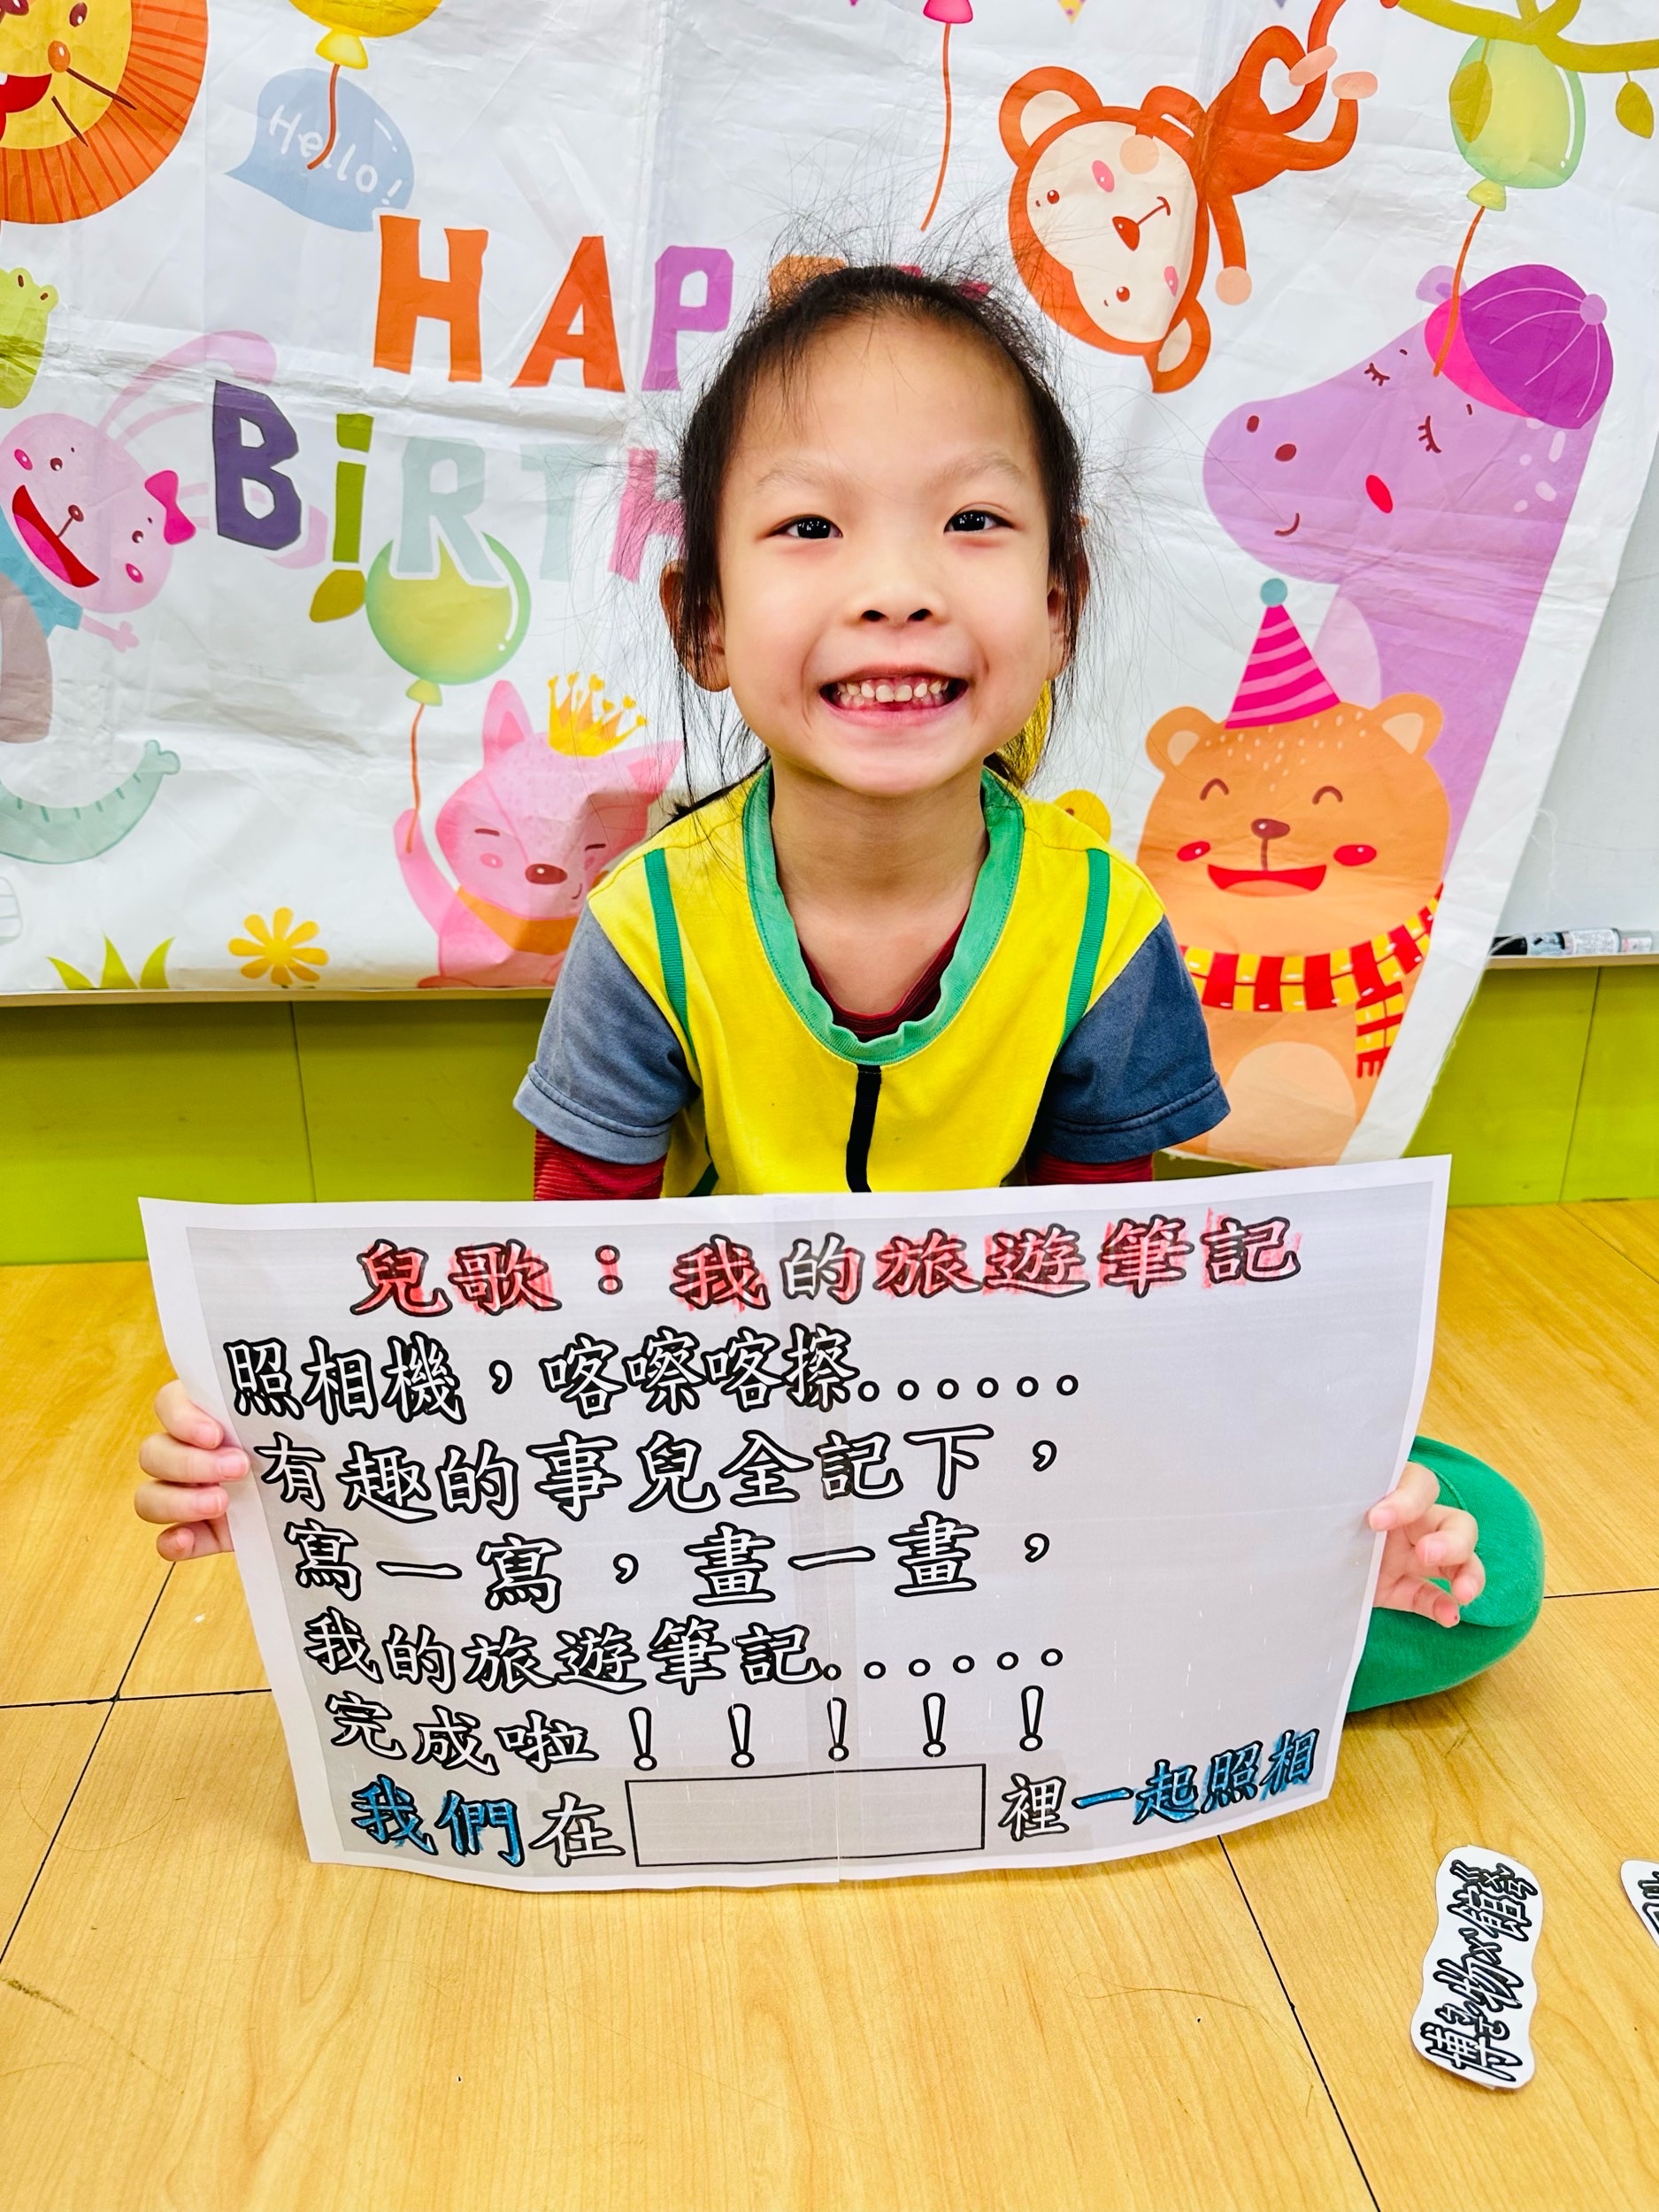 Hello!
HAPP
BiRTH
兒歌：我的旅遊筆記
照相機，喀嚓喀擦......
有趣的事兒全記下，
寫一寫，畫一畫，
我的旅遊筆記......
完成啦！！！！！
我們在 裡一起照相
博物館